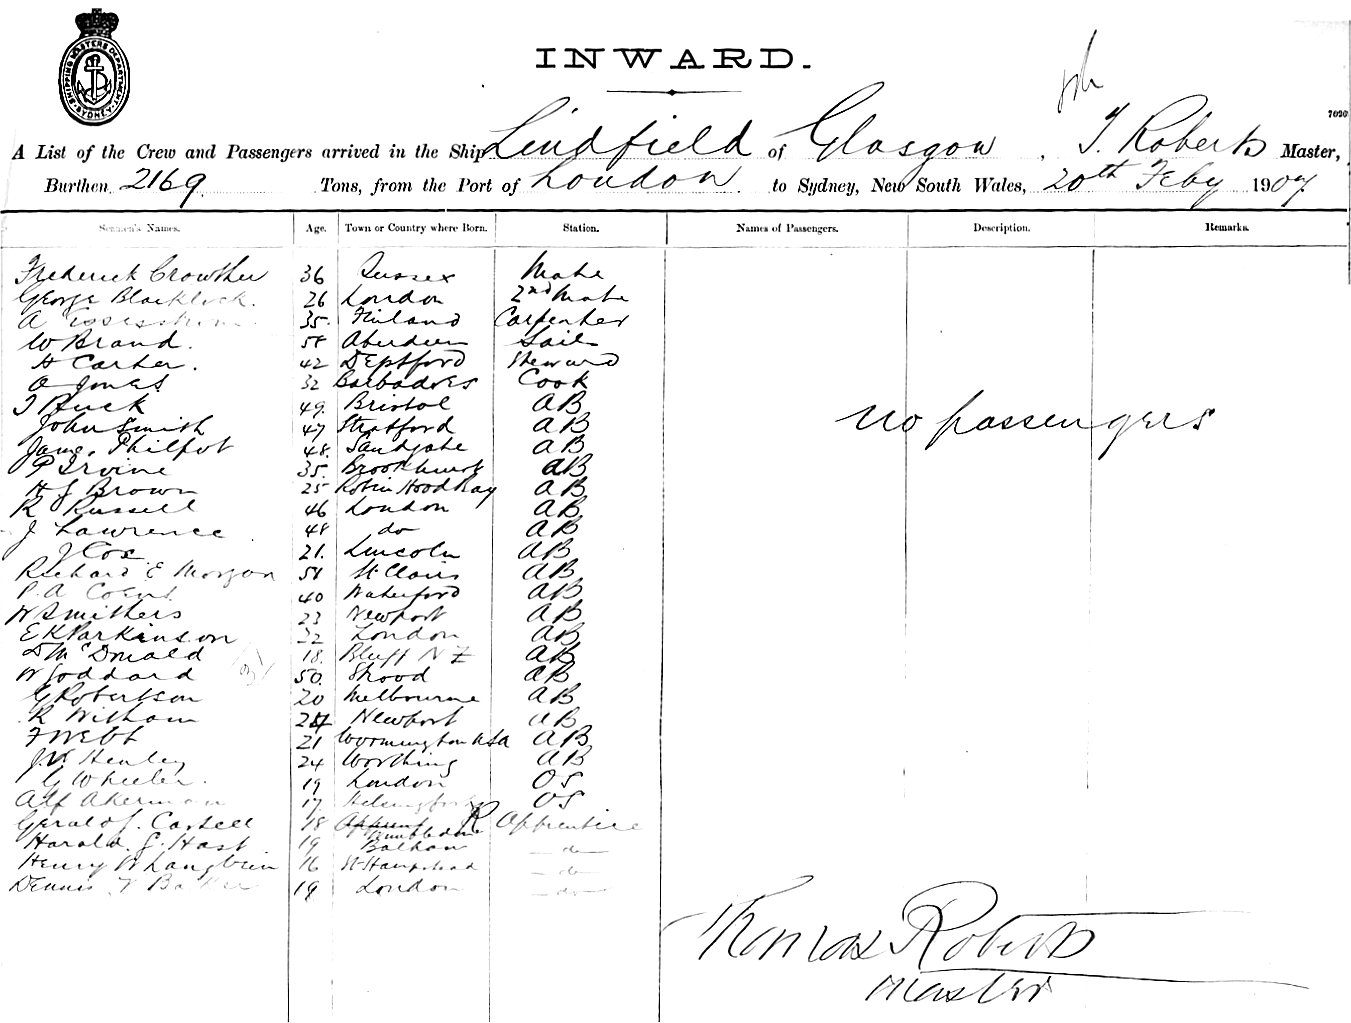 SHIPPING MASTERS DEPARTMENT SYDNEY
INWARD.
7020
A List of the Crew and Passengers arrived in the Ship Lindfield of Glasgow, T. Roberts Master,
Burthen 2169 Tons, from the Port of London to Sydney, New South Wales, 20th Feby 1907
Seamen's Names. Age. Town or Country where Born. Station. Names of Passengers. Description. Remarks.
Frederick Crowther 36 Sussex Mate
George Blacklock. 26 London 2nd Mate
A 35. Finland Carpenter
W Brand. 58 Aberdeen Sails
H Carter. 42 Deptford Steward
A Jones 32 Barbadoes Cook
T Buck 49. Bristol AB
no passengers
John Smith 47 Stratford AB
James Philpot 48. Sandgate AB
P Irvine 35. AB
H J Brown 25 Robin Hood Bay AB
R Russell 46 London AB
J Lawrence 48 do AB
J Cox 21. Lincoln AB
Richard E Morgan 51 St Clairs AB
P. A 40 Waterford AB
W Smithers 23 Newport AB
E K Parkinson 22 London AB
D McDonald 18. Bluff N Z AB
W Goddard 50. Strood AB
G Robertson 20 Melbourne AB
R Witham 24 Newport AB
F Webb 21 Wormington USA AB
J. W Henley 24 Worthing AB
G Wheeler. 19 London OS
Alf Akerman 17. Helsingfors OS
Gerald J. Castell 18 Wimbledon Apprentice
Harold. G. Hast 19 Balham do
Henry W Langbein 16 W Hampstead do
Dennis T Baker 19 London do
Thomas Roberts
Master